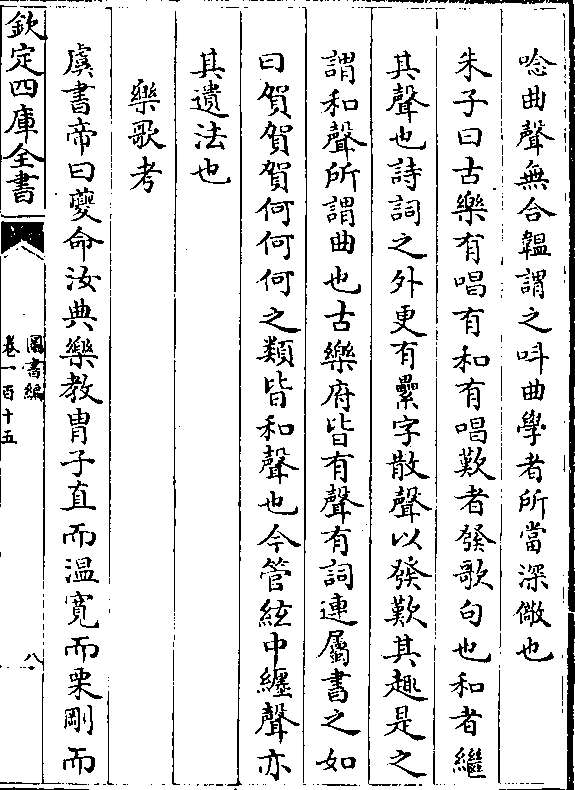 唸曲聲無合韞謂之呌曲學者所當深儆也
朱子曰古樂有唱有和有唱歎者發歌句也和者繼
其聲也詩詞之外更有纍字散聲以發歎其趣是之
謂和聲所謂曲也古樂府皆有聲有詞連屬書之如
曰賀賀賀何何何之類皆和聲也今管絃中纏聲亦
其遺法也
樂歌考
虞書帝曰夔命汝典樂教胄子直而溫寛而栗剛而
欽定四庫全書
圖書編
卷一百十五
八